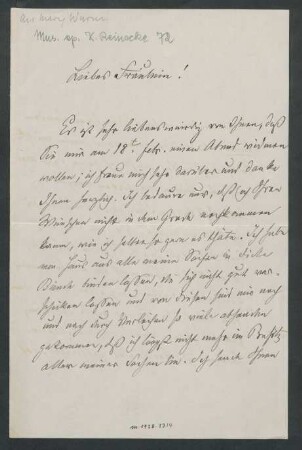 An Mary Wurm
Mus. ep. K. Reinecke 72
Liebes Fräulein!
Es ist sehr liebenswürdig von Ihnen, daß
Sie mir am 18t Febr. einen Abend widmen
wollen; ich freue mich sehr darüber und danke
Ihnen herzlich. Ich bedaure nur, daß ich Ihren
Wünschen nicht in dem Grade nachkommen
kann, wie ich selber so gern es thäte. Ich habe
im Haus aus alle meine Sachen in dicke
Bände binden lassen, die sich nicht gut ver-
schicken lassen und von Diesen sind mir nach
und nach durch Verleihen so viele abhanden
gekommen, daß ich längst nicht mehr im Besitz
aller meiner Sachen bin. Ich sende Ihnen
m. 1938. 1314